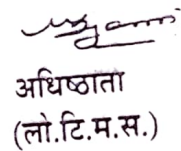 अधिष्ठाता
(लो.टि.म.स.)